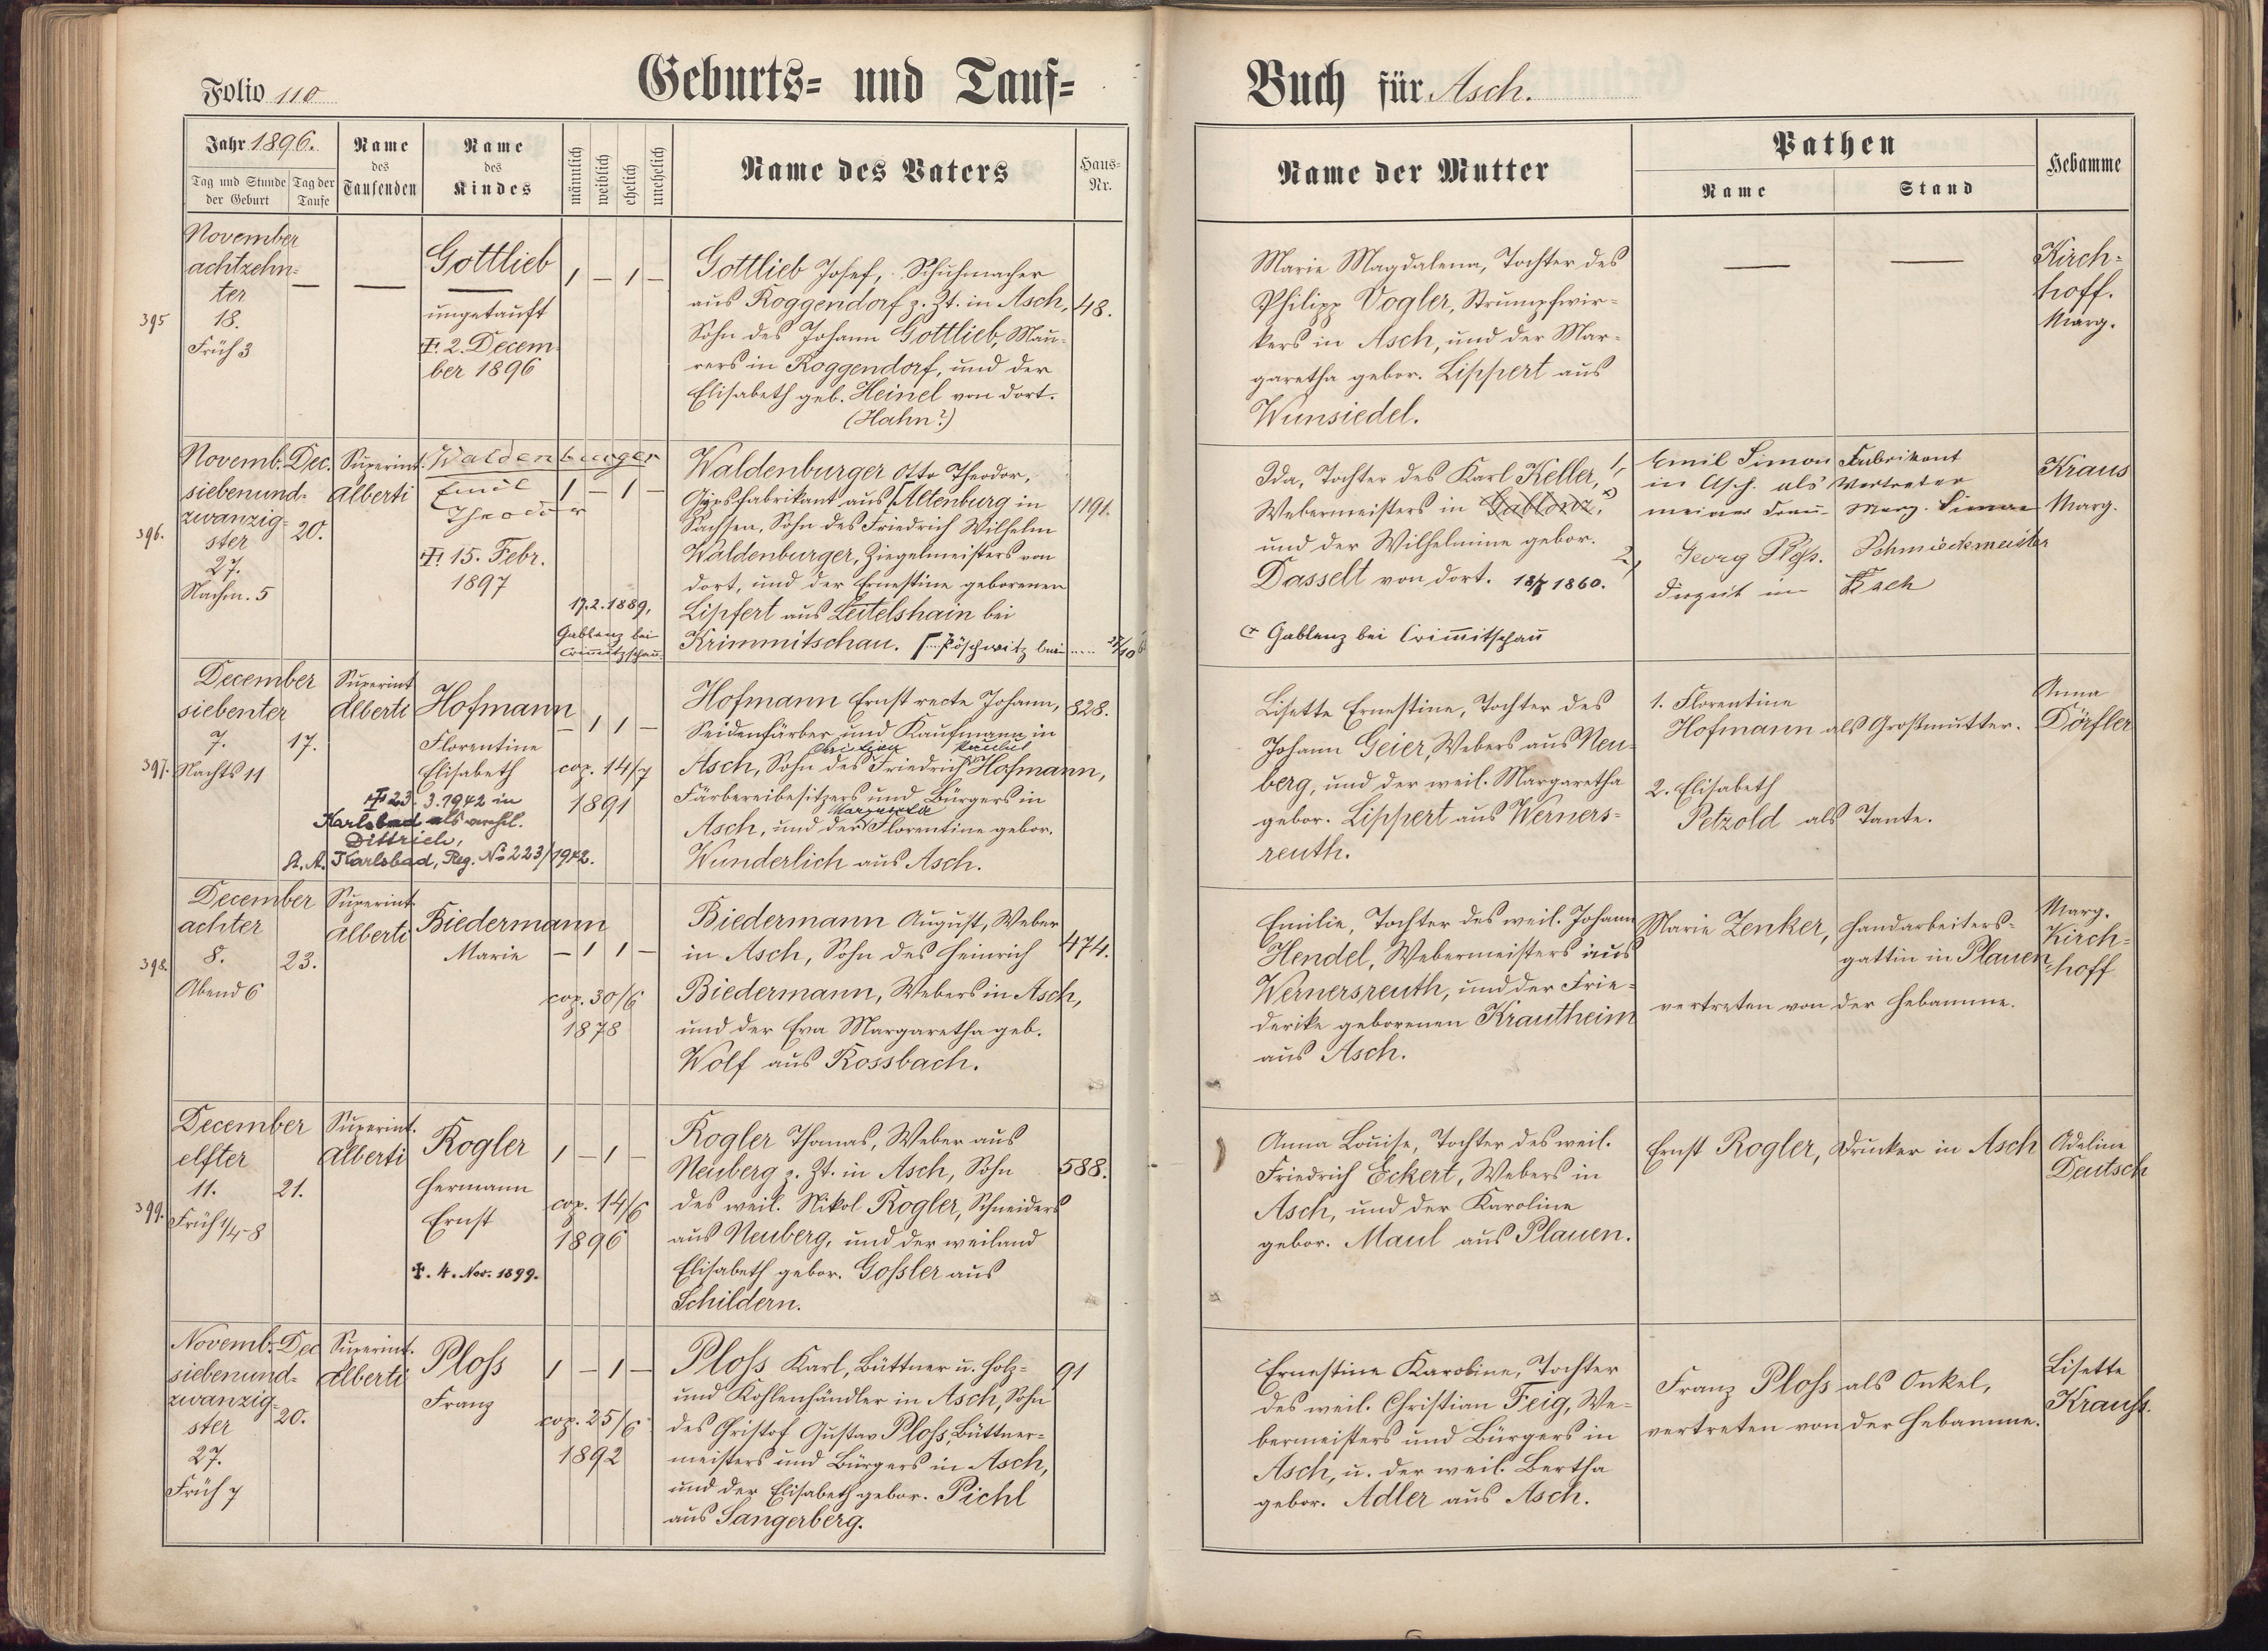 Folio 110
Geburts- und Tauf-
Jahr 1896.
Tag und Stunde
der Geburt
Tag der
Taufe
Name
des
Taufenden
Name
des
Kindes
männlich
weiblich
ehelich
unehelich
Name des Vaters
Haus-
Nr.
395
November
achtzehn-
ter
18.
Früh 3
—
—
Gottlieb
—
ungetauft
†. 2. Decem-
ber 1896
1 – 1 –
Gottlieb Josef, Schuhmacher
aus Roggendorf z. Zt. in Asch,
Sohn des Johann Gottlieb, Mau-
rers in Roggendorf, und der
Elisabeth geb. Heinel von dort.
(Hahn?)
48.
396.
Novemb.
siebenund-
zwanzig-
ster
27.
Nachm. 5
Dec.
20.
Superint.
Alberti
Waldenburger
Emil
Theodor
†. 15. Febr.
1897
1 – 1 –
17.2.1889,
Gablenz bei
Crimmitzschau.
Waldenburger Otto Theodor,
Gypsfabrikant aus Altenburg in
Sachsen, Sohn des Friedrich Wilhelm
Waldenburger, Ziegelmeisters von
dort, und der Ernestine geborenen
Lipfert aus Leitelshain bei
Krimmitschau. Pöschwitz bei
1191.
397.
December
siebenter
7.
Nachts 11
17.
Superint
Alberti
Hofmann
Florentine
Elisabeth
† 23. 3. 1942 in
Karlsbad als verehl.
Dittrich,
St. A. Karlsbad, Reg. No 223/1942.
– 1 1 –
cop. 14/7
1891
Hofmann Ernst recte Johann,
Seidenfärber und Kaufmann in
Christian Paulus
Asch, Sohn des Friedrich Hofmann,
Färbereibesitzers und Bürgers in
Margareta
Asch, und der Florentine gebor.
Wunderlich aus Asch.
828.
398.
December
achter
8.
Abend 6
23.
Superint.
Alberti
Biedermann
Marie
– 1 1 –
cop. 30/6
1878
Biedermann August, Weber
in Asch, Sohn des Heinrich
Biedermann, Webers in Asch,
und der Eva Margaretha geb.
Wolf aus Rossbach.
474.
399.
December
elfter
11.
Früh 1/4 8
21.
Superint.
Alberti
Rogler
Hermann
Ernst
†. 4. Nov. 1899.
1 – 1 –
cop. 14/6
1896
Rogler Thomas, Weber aus
Neuberg z. Zt. in Asch, Sohn
des weil. Nikol Rogler, Schneiders
aus Neuberg, und der weiland
Elisabeth gebor. Gossler aus
Schildern.
588.
Novemb.
siebenund-
zwanzig-
ster
27.
Früh 7
Dec
20.
Superint.
Alberti
Ploss
Franz
1 – 1 –
cop. 25/6
1892
Ploss Karl, Büttner u. Holz-
und Kohlenhändler in Asch, Sohn
des Christof Gustav Ploss, Büttner-
meisters und Bürgers in Asch,
und der Elisabeth gebor. Pichl
aus Sangerberg.
91
Buch für Asch.
Name der Mutter
Pathen
Name
Stand
Hebamme
Marie Magdalena, Tochter des
Philipp Vogler, Strumpfwir-
kers in Asch, und der Mar-
garetha gebor. Lippert aus
Wunsiedel.
—
—
Kirch-
hoff.
Marg.
Ida, Tochter des Karl Keller,
Webermeisters in Gablonz,
und der Wilhelmine gebor.
Dasselt von dort. 18/7 1860.
Gablenz bei Crimmitschau
1, Emil Simon Fabrikant
in Asch. als Vertreter
meiner Frau Marg. Simon
2, Georg Ploss. Schmiedemeister
derzeit in Asch
Kraus
Marg.
Lisette Ernestine, Tochter des
Johann Geier, Webers aus Neu-
berg, und der weil. Margaretha
gebor. Lippert aus Werners-
reuth.
1. Florentine
Hofmann als Großmutter.
2. Elisabeth
Petzold als Tante.
Anna
Dörfler
Emilie, Tochter des weil. Johann
Hendel, Webermeisters aus
Wernersreuth, und der Frie-
derike geborenen Krautheim
aus Asch.
Marie Zenker, Handarbeiters-
gattin in Plauen
vertreten von der Hebamme.
Marg.
Kirch-
hoff
Anna Louise, Tochter des weil.
Friedrich Eckert, Webers in
Asch, und der Karoline
gebor. Maul aus Plauen.
Ernst Rogler, Drucker in Asch
Adeline
Deutsch
Ernestine Karoline, Tochter
des weil. Christian Feig, We-
bermeisters und Bürgers in
Asch, u. der weil. Bertha
gebor. Adler aus Asch.
Franz Ploss als Onkel,
vertreten von der Hebamme.
Lisette
Krauss.